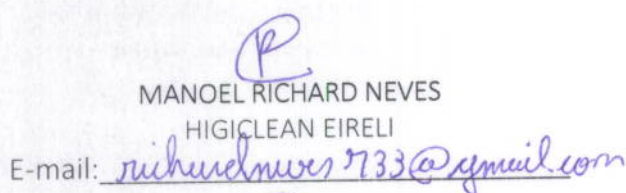 MANOEL RICHARD NEVES
HIGICLEAN EIRELI
E-mail: richardneves733@gmail.com